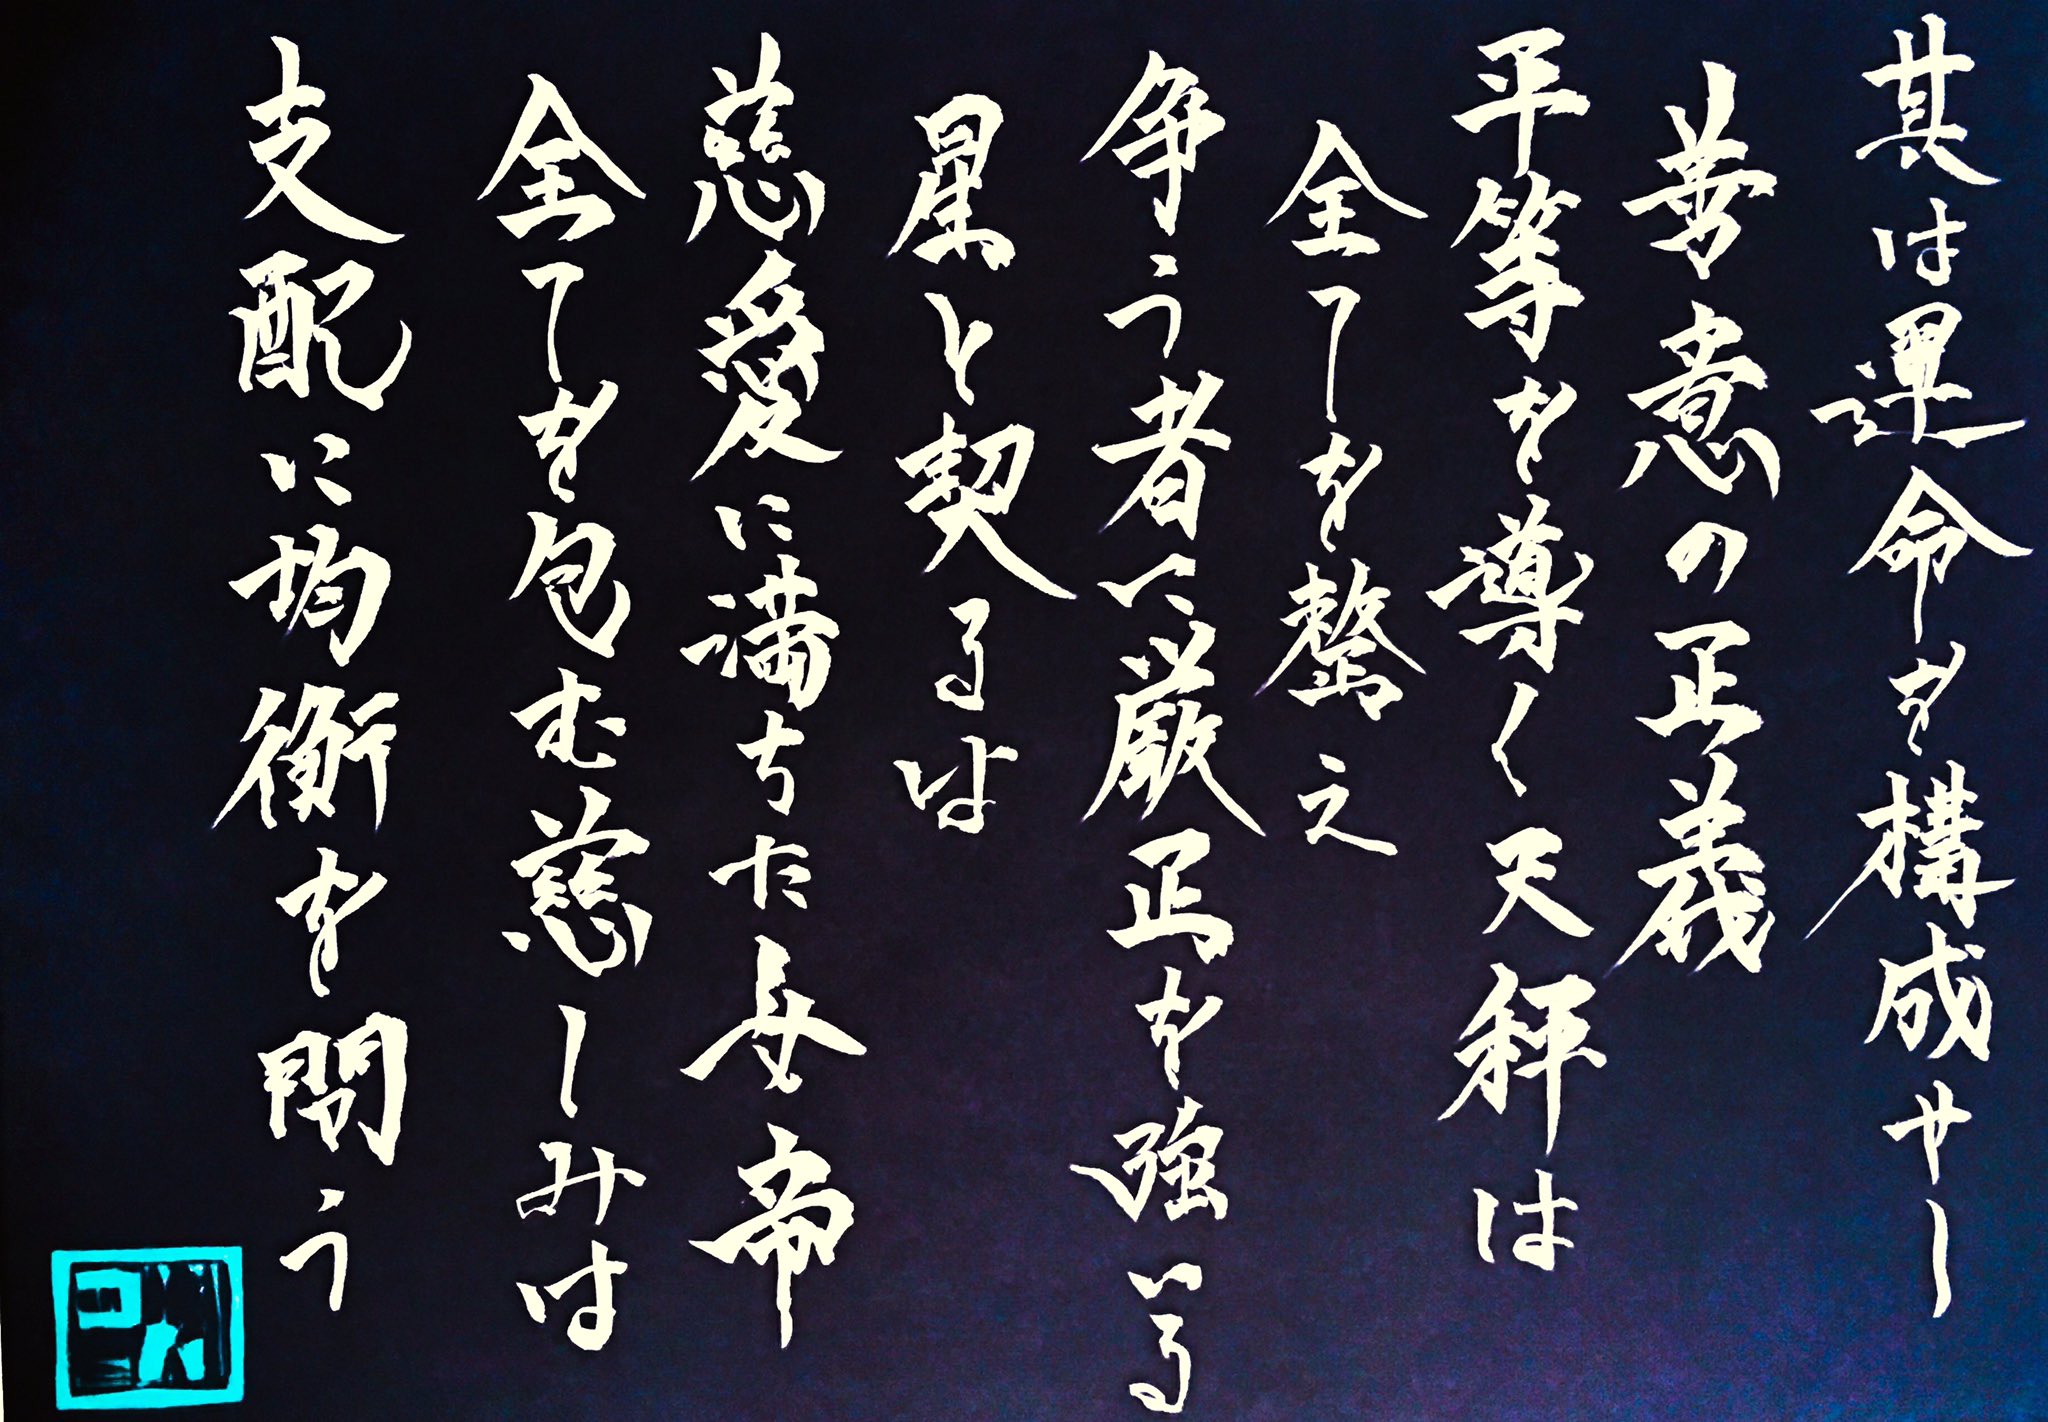 其は運命を構成せし
善意の正義
平等を導く天秤は
全てを整え
争う者に厳正を強いる
星と契るは
慈愛に満ちた女帝
全てを包む慈しみは
支配に均衡を問う